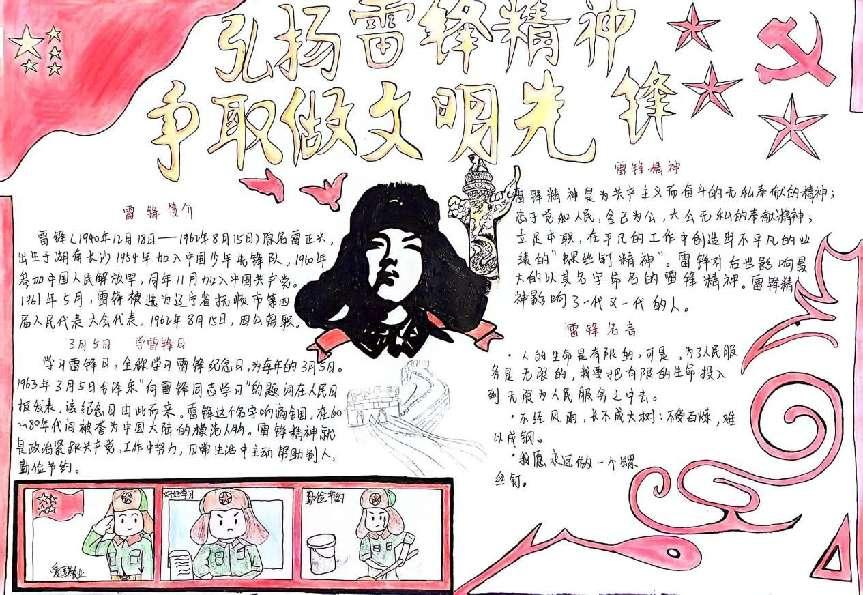 弘扬雷锋精神
争取做文明先锋
雷锋简介
雷锋(1940年12月18日——1962年8月15日)原名雷正兴,
出生于湖南长沙,1954年加入中国少年先锋队,1960年
参加中国人民解放军,同年11月加入中国共产党。
1961年5月,雷锋被选为辽宁省抚顺市第四
届人民代表大会代表,1962年8月15日,因公殉职。
3月5日 学雷锋日
学习雷锋日,全称学习雷锋纪念日,为每年的3月5日。
1963年3月5日毛泽东"向雷锋同志学习"的题词在人民日
报发表,该纪念日由此而来。雷锋这个名字响亮全国,在60
~80年代间被誉为中国大陆的模范人物。雷锋精神就
是政治紧跟共产党,工作中努力,日常生活中主动帮助别人,
勤俭节约。
雷锋精神
雷锋精神是为共产主义而奋斗的无私奉献的精神;
忠于党和人民,舍己为公,大公无私的奉献精神;
立足本职,在平凡的工作中创造出不平凡的业
绩的"螺丝钉精神"。雷锋对后世影响最
大的以其名字命名的雷锋精神。雷锋精
神影响了一代又一代的人。
雷锋名言
·人的生命是有限的,可是,为人民服
务是无限的,我要把有限的生命投入
到无限为人民服务之中去。
·不经风雨,长不成大树;不受百炼,难
以成钢。
·我愿永远做一个螺
丝钉。
好好学习
勤俭节约